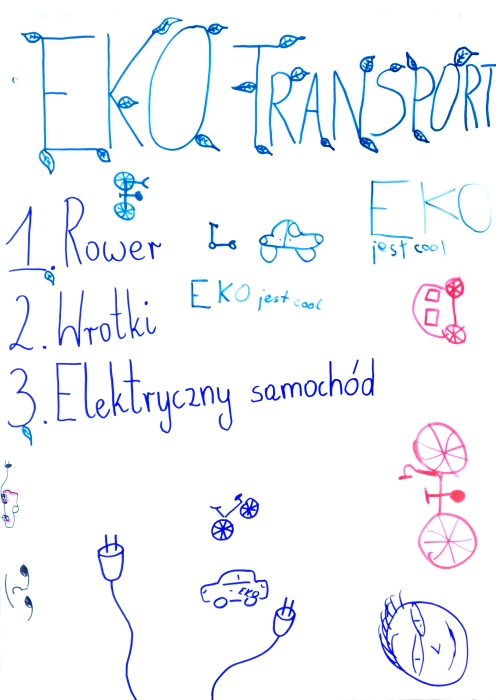 EKO TRANSPORT
1. Rower
EKO
jest cool
EKO jest cool
2. Wrotki
3. Elektryczny samochód
EKO